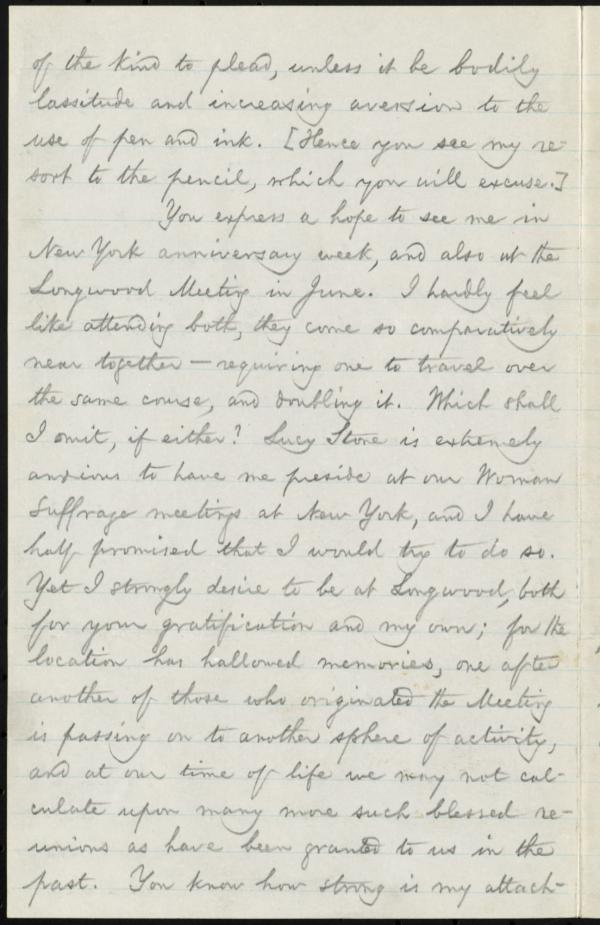 of the kind to plead, unless it be bodily
lassitude and increasing aversion to the
use of pen and ink. [Hence you see my re-
sort to the pencil, which you will excuse.]
You express a hope to see me in
New York anniversary week, and also at the
Longwood Meeting in June. I hardly feel
like attending both, they come so comparatively
near together — requiring one to travel over
the same course, and doubling it. Which shall
I omit, if either? Lucy Stone is extremely
anxious to have me preside at our Woman
Suffrage meetings at New York, and I have
half promised that I would try to do so.
Yet I strongly desire to be at Longwood, both
for your gratification and my own; for the
location has hallowed memories, one after
another of those who originated the Meeting
is passing on to another sphere of activity,
and at our time of life we may not cal-
culate upon many more such blessed re-
unions as have been granted to us in the
past. You know how strong is my attach-